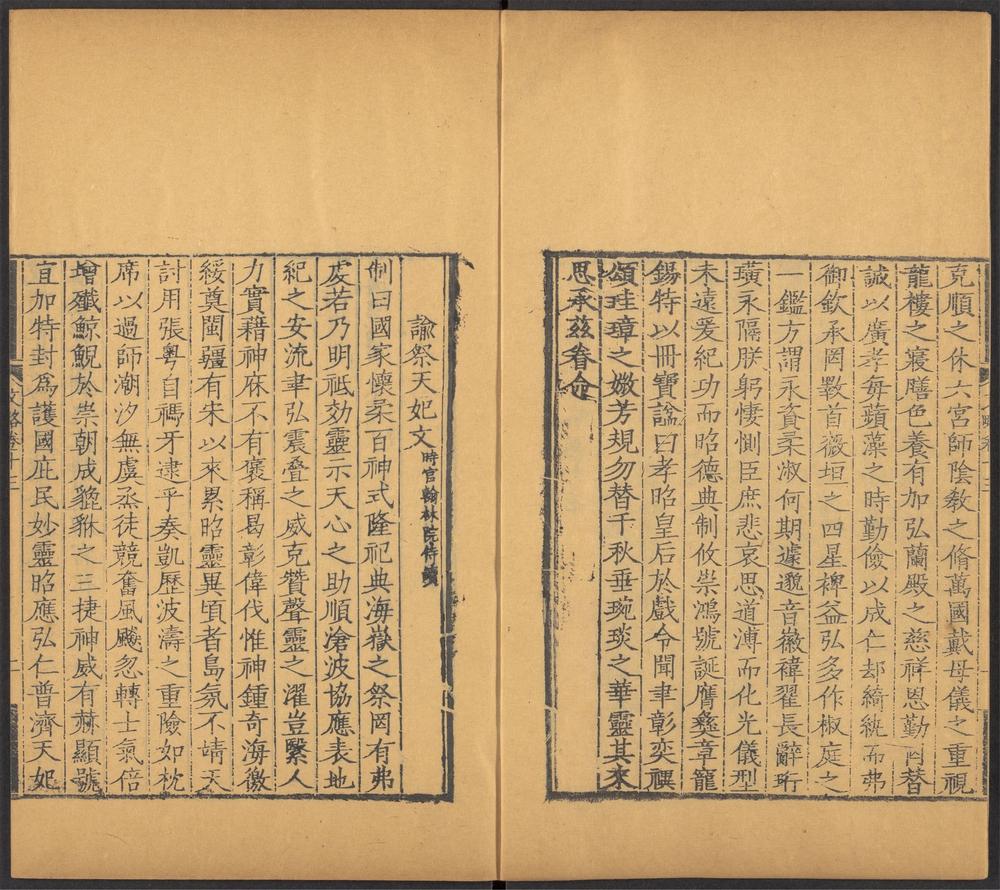 克順之休六宮師陰敎之脩萬國戴母儀之重視
龍樓之寢膳色養有加弘蘭殿之慈祥恩勤罔替
誠以廣孝每蘋藻之時勤儉以成仁却綺紈而弗
御欽承罔斁首薇垣之四星裨益弘多作椒庭之
一鑑方謂永資柔淑何期遽邈音徽褘翟長辭珩
璜永隔朕躬悽惻臣庶悲哀思道溥而化光儀型
未遠爰紀功而昭德典制攸崇鴻號誕膺彝章寵
錫特以冊寶諡曰孝昭皇后於戲令聞聿彰奕禩
頌珪璋之媺芳規勿替千秋垂琬琰之華靈其來
思承茲眷命
諭祭天妃文時官翰林院侍讀
制曰國家懷柔百神式隆祀典海嶽之祭罔有弗
虔若乃明祗効靈示天心之助順滄波協應表地
紀之安流聿弘震疊之威克贊聲靈之濯豈繄人
力實藉神庥不有褒稱曷彰偉伐惟神鍾奇海徼
綏奠閩疆有宋以來累昭靈異頃者島氛不靖天
討用張粵自禡牙逮乎奏凱歷波濤之重險如枕
席以過師潮汐無虞烝徒競奮風飈忽轉士氣倍
增殲鯨鯢於崇朝成貔貅之三捷神威有赫顯號
宜加特封爲護國庇民妙靈昭應弘仁普濟天妃
文略卷十三